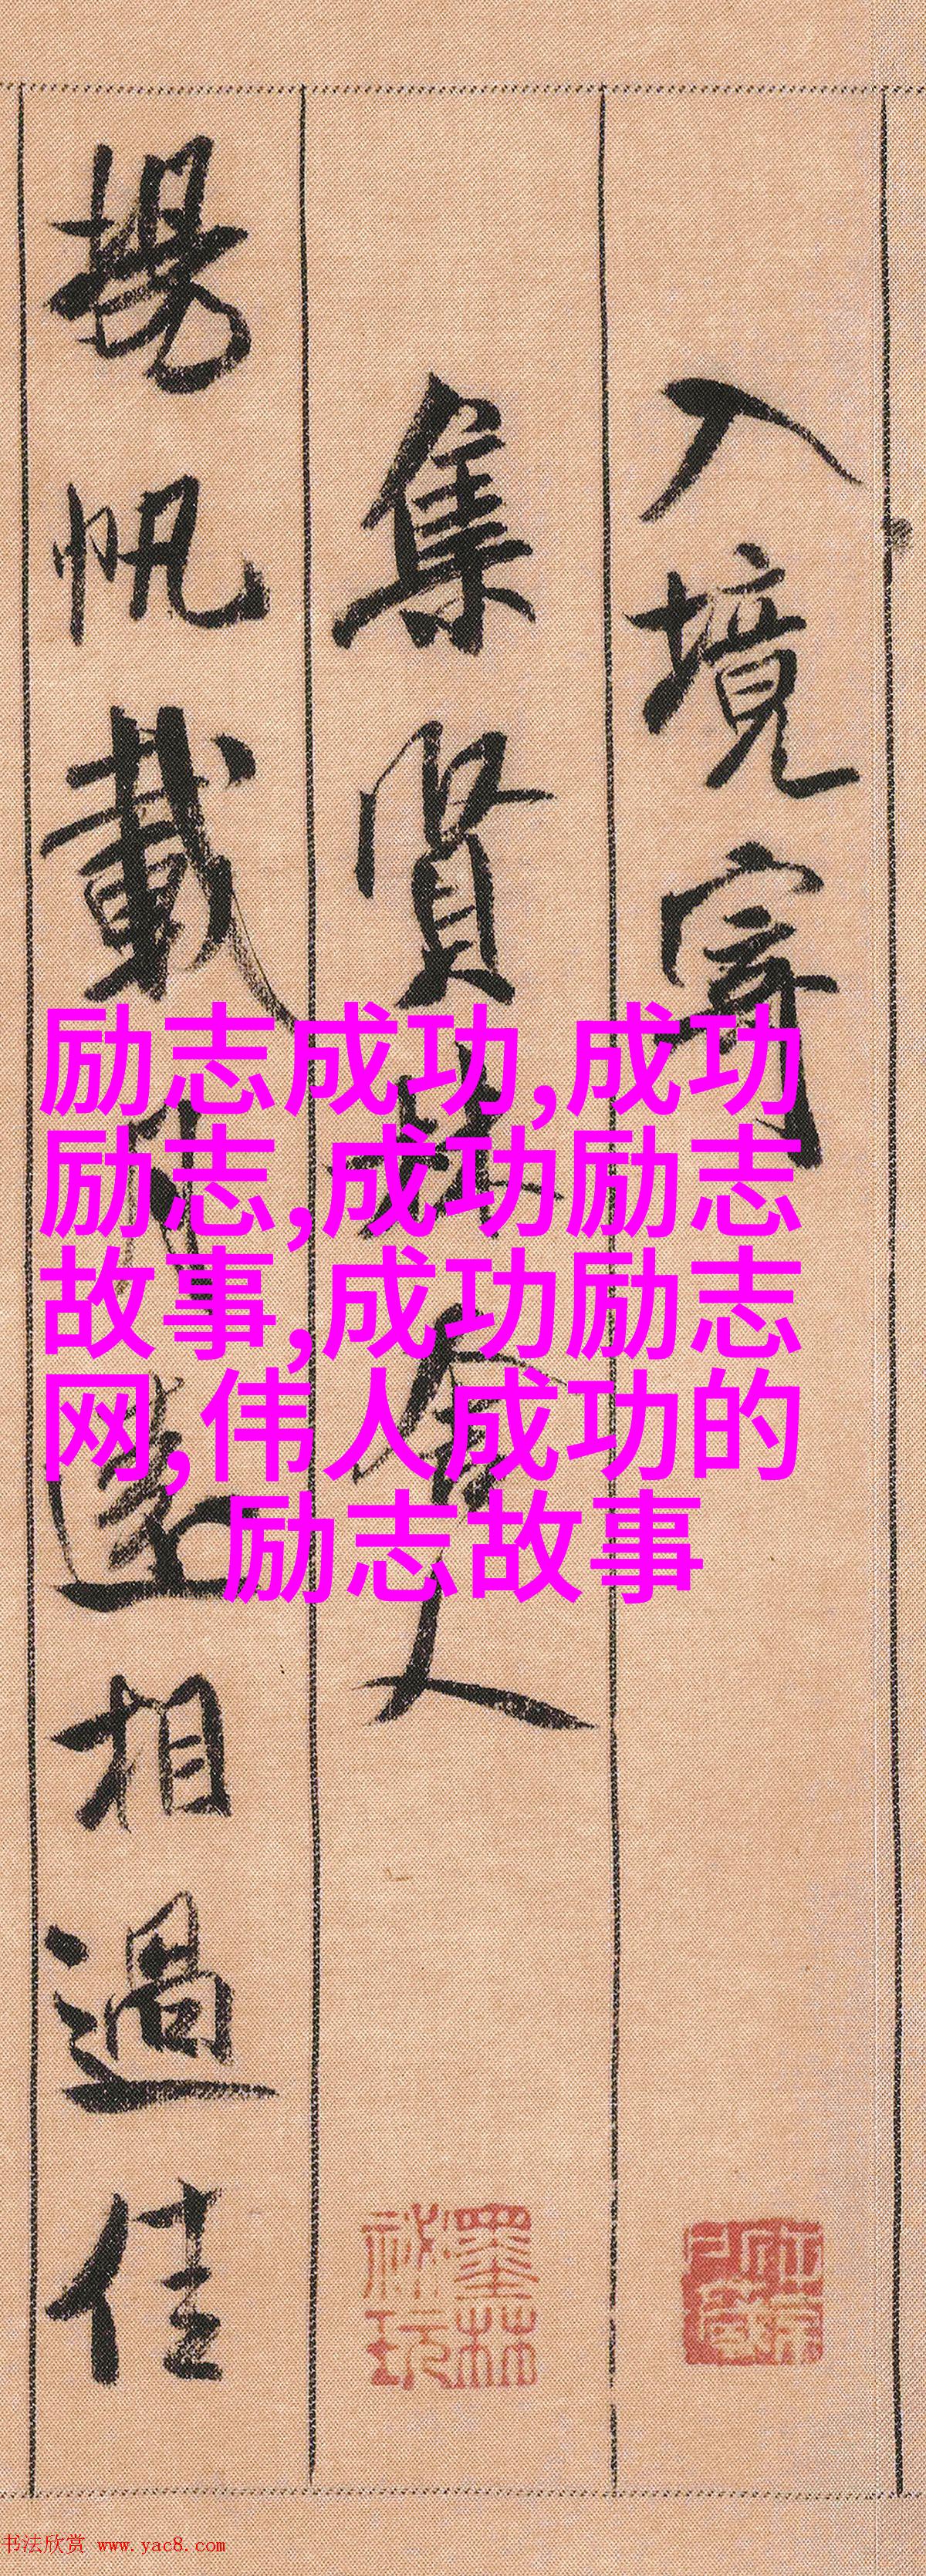 入境寄
集賢林舍人
揚帆載月遠相過佳
励志成功,成功
励志,成功励志
故事,成功励志
网,伟人成功的
励志故事
墨林
祕玩
书法欣赏 www.yac8.com